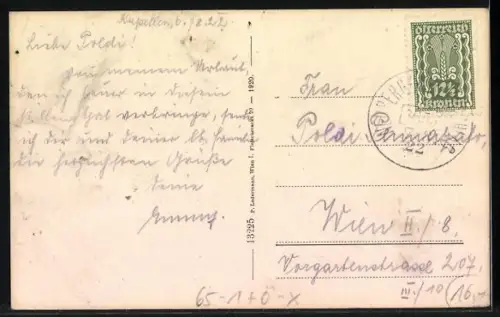 Kapellen, 6./8. 22.
Liebe Poldi!
von meinem Urlaub,
den ich heuer in diesem
stillen Tal verbringe, sende
ich dir und deiner lb. Familie
die herzlichsten Grüße
deine
Emmy.
13225 P. Ledermann, Wien I. 1920.
österreich
12½
kronen
Frau
Poldi
Wien II./8.
Vorgartenstrasse 207.
III./10
16,-
65-1+Ö-X